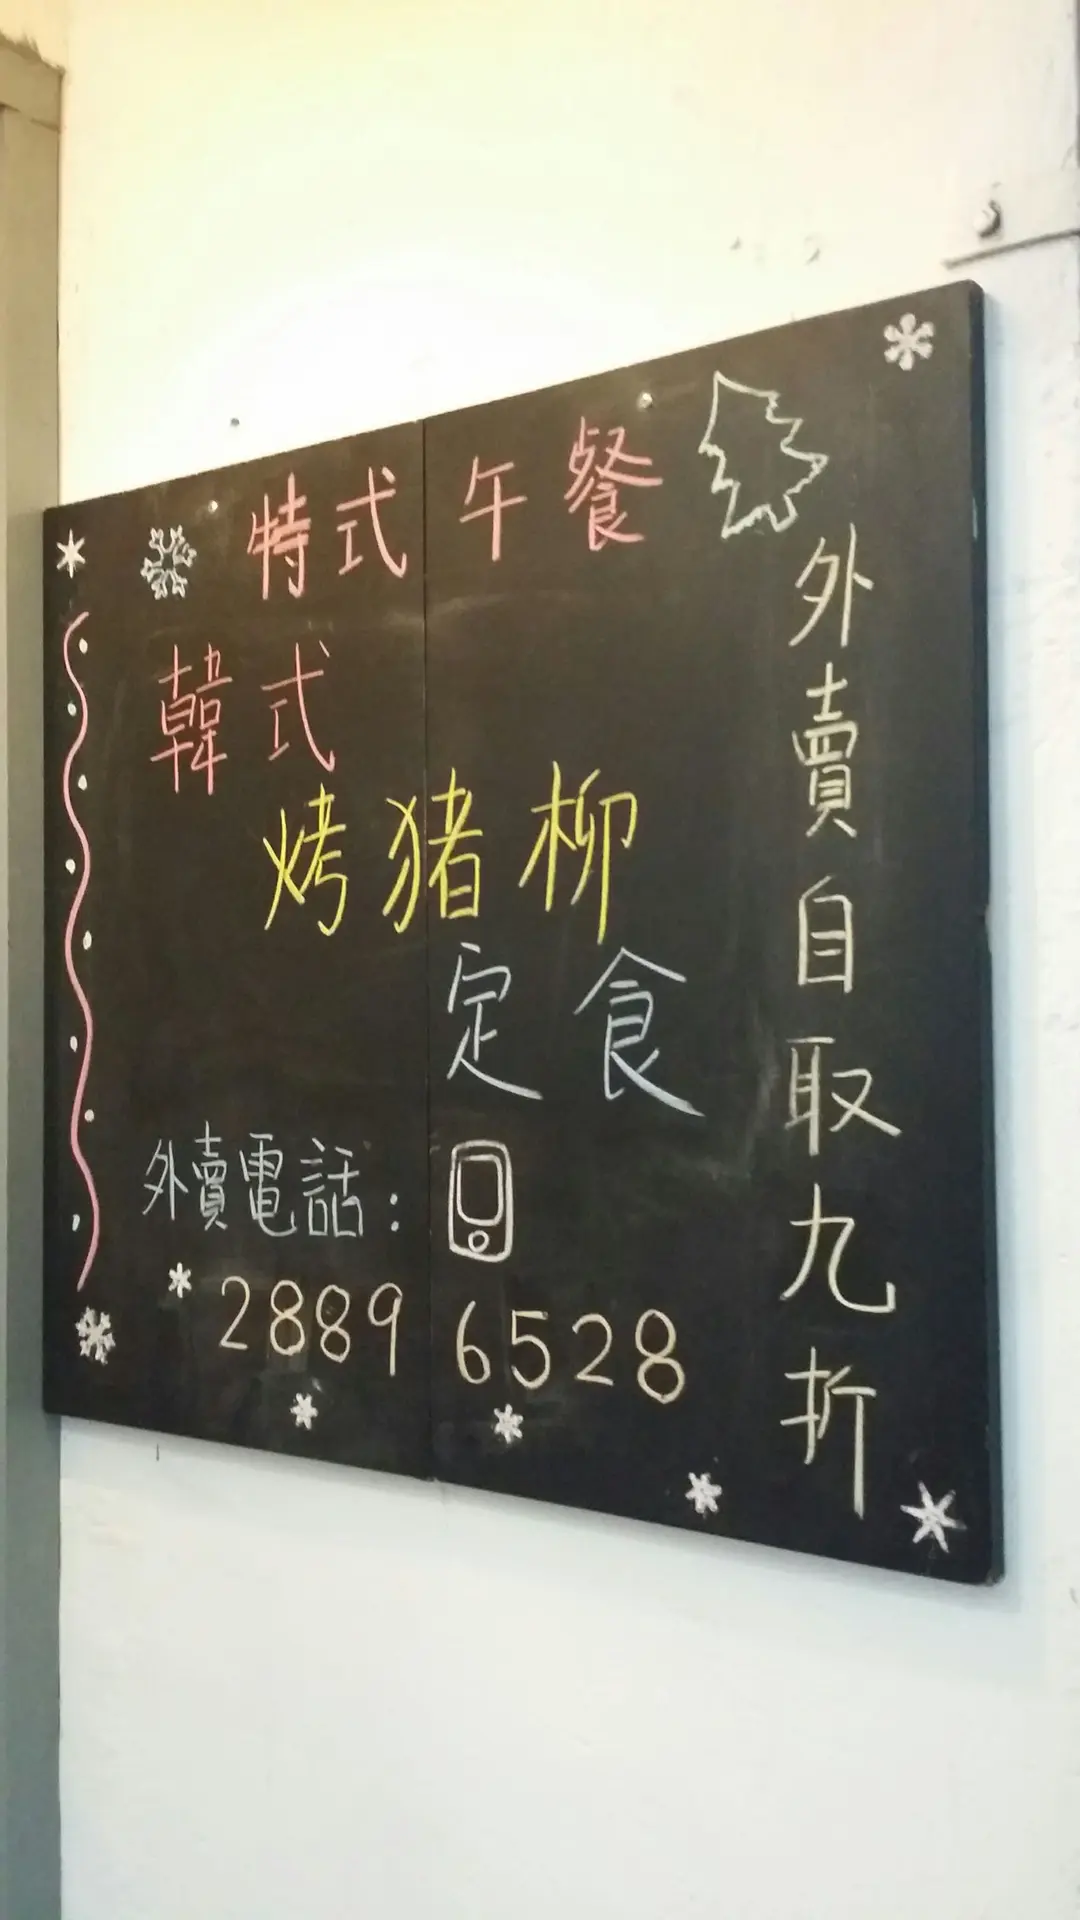 特式午餐
韓式
烤猪柳
定食
外賣電話：
2889 6528
外賣自取九折